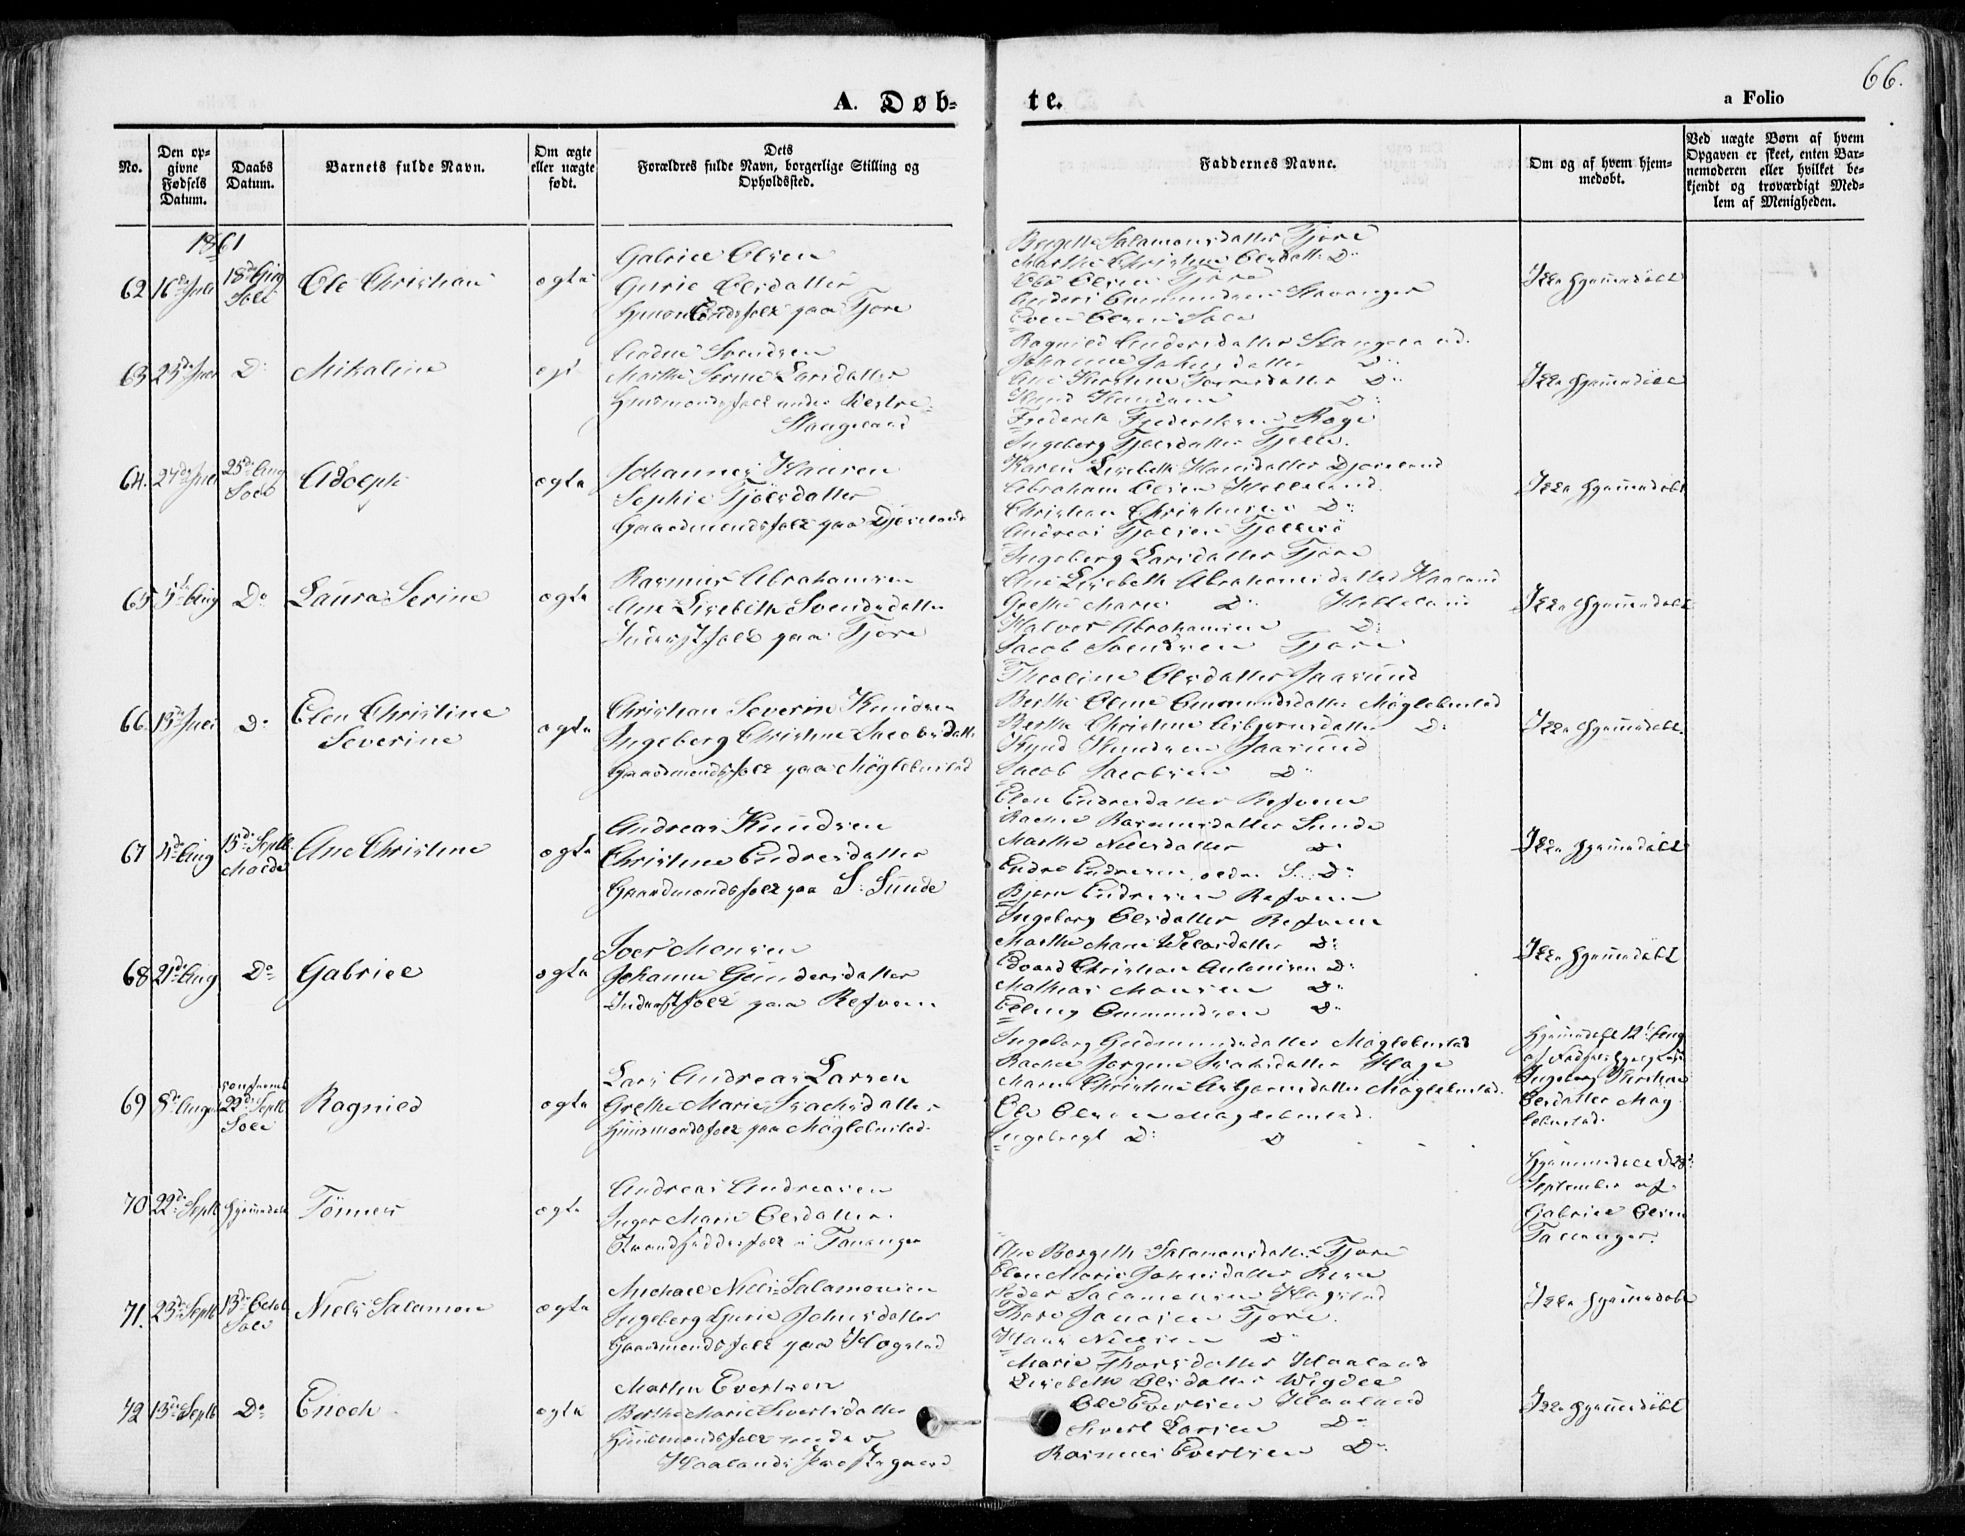 66.
A. Døb-
te.
a Folio
No.
Den op-
givne
Fødsels
Datum.
Daabs
Datum.
Barnets fulde Navn.
Om ægte
eller uægte
født.
Dets
Forældres fulde Navn, borgerlige Stilling og
Opholdssted.
Faddernes Navne.
Om og af hvem hjem-
medøbt.
Ved uægte Børn af hvem
Opgaven er skeet, enten Bar-
nemoderen eller hvilket be-
kjendt og troværdigt Med-
lem af Menigheden.
1861
62
16de Juli
18de Aug
Sole
Ole Christian
ægte
Gabriel Olsen
Gurie Olsdatter
Folk paa Tjore
Bergitte Salamonsdatter Tjore
Marthe Christine Olsdatter Do
Ole Olsen Tjore
Anders Ommundsen Stavanger
Sven Olsen Sole
Ikke hjemmedøbt
63
23de Juli
Do
Mikaline
Svendsen
Marthe Serine Larsdatter
Huusmandsfolk under Vestre
Stangeland
Ragnild Andersdatter Stangeland
Johanne Johnsdatter Do
Ane Kirstine Do
Knud Knudsen Do
Frederik Frederiksen Røge
Ikke hjemmedøbt
64.
27de Juli
25de Aug
Sole
Adolph
ægte
Johannes Hansen
Sophie Tjølsdatter
Gaardmandsfolk paa Djøseland
Ingeborg Tjølsdatter
Karen Lisebeth Hansdatter
Abraham Olsen Helleland
Christian Christensen Do
Andreas Tjølsen
Ikke hjemmedøbt
65
5te Aug
Do
Laura Serine
ægte
Rasmus Abrahamsen
Ane Lisebeth Svendsdatter
Inderstfolk paa Tjore
Ingeborg Larsdatter Tjore
Ane Lisebeth Abrahamsdatter Haaland
Grethe Marie Do Helleland
Halvor Abrahamsen Do
Jacob Svendsen Tjore
Ikke hjemmedøbt
66.
13de Juli
Do
Elen Christine
Severine
ægte
Christian Severin Knudsen
Ingeborg Christine Jacobsdatter
Gaardmandsfolk paa Møglebustad
Theoline Olsdatter Jaasund
Berthe Oline Ommundsdatter Møglebustad
Berthe Christine Asbjørnsdatter Do
Knud Knudsen Jaasund
Jacob Jacobsen Do
Ikke hjemmedøbt.
67
4de Aug
15de Septb
Malde
Ane Christine
ægte
Andreas Knudsen
Christine Endresdatter
Gaardmandsfolk paa S. Sunde
Elen Endresdatter Refsnes
Rasmusdatter Sunde
Marthe Nielsdatter Do
Endre Endresen S. Do
Bjørn Endresen Refsnes
Ikke hjemmedøbt
68
21de Aug
Do
Gabriel
ægte
Joel Monsen
Johanne Gundersdatter
Inderstfolk paa Refsnes
Ingeborg Olsdatter Refsnes
Marthe Marie Do
Edvard Christian Antonisen Do
Mathias Monsen Do
Elling Ommundsen Do
Ikke hjemmedøbt
69
8de August
22de Septb
Sole
Ragnild
ægte
Lars Andreas Larsen
Grethe Marie Isachsdatter
Huusmandsfolk paa Møglebustad
Ingeborg Gudmundsdatter Møglebustad
Rachel Jørgine Isaksdatter Hage
Maren Christine Asbjørnsdatter Møglebustad.
Ole Olsen Møglebustad.
Engebregt Do Do
Hjemmedøbt 12te Aug
af
Ingeborg Kirstine
Olsdatter Møg-
lebustad.
70
22de Septb
hjemmedøbt
Tønnes
ægte
Andreas Andreasen
Inger Marie Olsdatter.
Strandsidderfolk i Tananger
Hjemmedøbt d 28de
September af
Gabriel Olsen
Tananger.
71.
23de Septb
13de Octob
Sole
Niels Salamon
ægte
Michael Niels Salamonsen
Ingeborg Gurie Johnsdatter
Gaardmandsfolk paa Hogstad
Ane Bergitte Salamonsdatter Tjore
Elen Marie Johnsdatter
Peder Salamonsen Hogstad
Thore Jonasen Tjore.
Hans Nielsen Do
Ikke hjemmedøbt
72
13de Septb
Do
Enoch
ægte
Morten Evertsen
Berthe Marie Sivertsdatter
Huusmandsfolk under
Haalands Præstegaard
Marie Thorsdatter Haaland
Lisebeth Olsdatter Wigdel
Ole Evertsen Haaland
Sivert Larsen Do
Rasmus Evertsen Do
Ikke hjemmedøbt